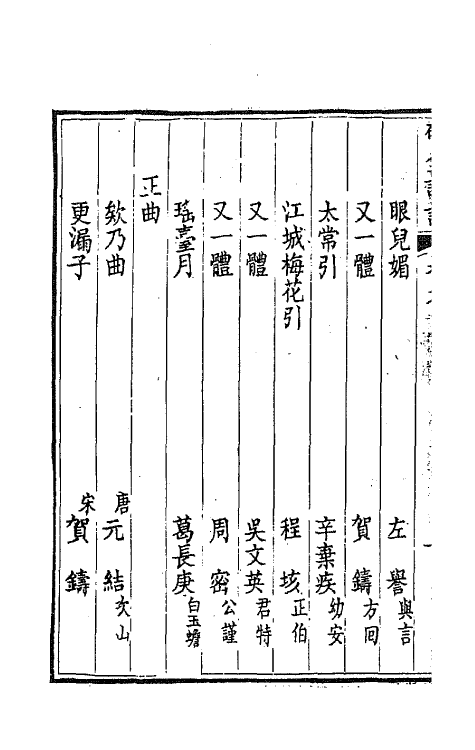 眼兒媚 左譽 與言
又一體 賀鑄 方回
太常引 辛棄疾 幼安
江城梅花引 程垓 正伯
又一體 吳文英 君特
又一體 周密 公謹
瑤臺月 葛長庚 白玉蟾
正曲
欸乃曲 唐 元結 次山
更漏子 宋 賀鑄